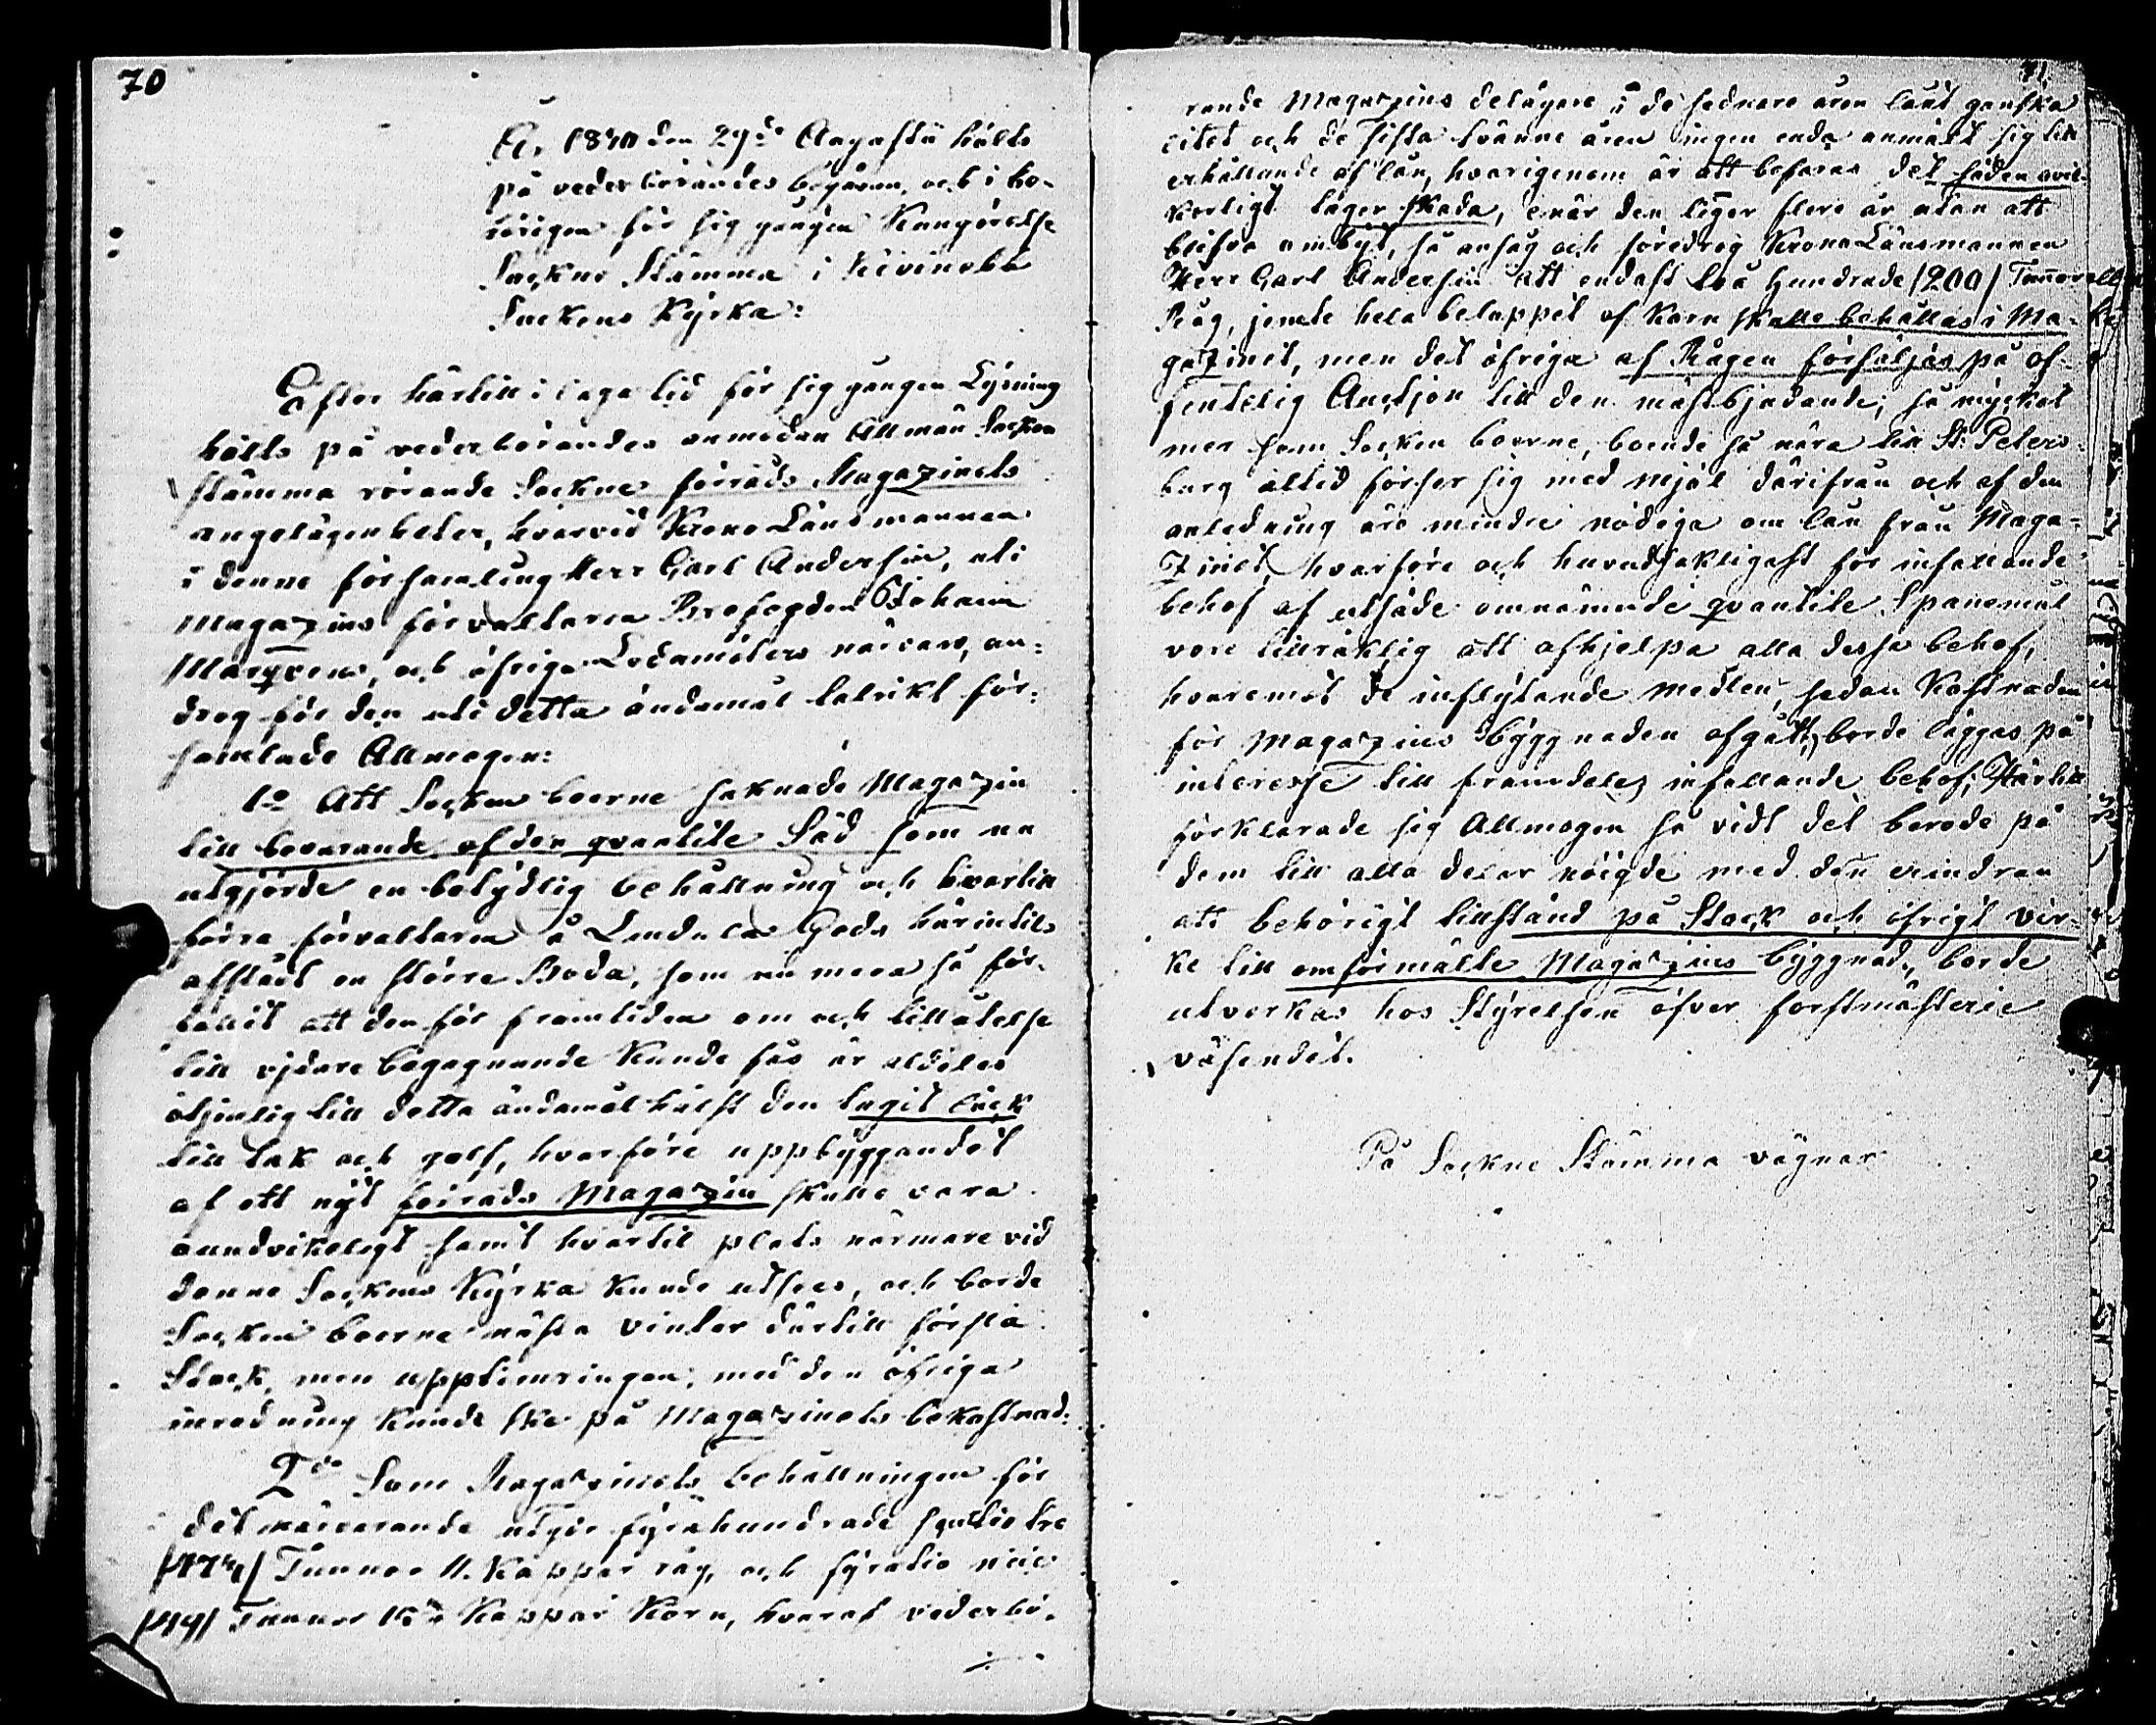 70
År 1840 den 29de Augusti hölts
på vederbörandes begäran, och i be-
hörigen för sig gången Kungörelse
Sockne Stämma i Kivinebb
Sockens Kyrka:
Efter härtill i laga tid för sig gången Lysning
hölts på vederbörandes anmodan Allmän Socken
stämma rörande Sockne förråds Magazinets
angelägenheter, hvarvid Krono Länsmannen
i denne församling Herr Carl Andersin, uti
Magazins förvaltaren Brofogden Johann
och öfrige Ledamöters närvaro, an-
drog för den uti detta ändamål talrikt för-
samlade Allmogen:
1o Att Socken boerne saknade Magazin
till bevarande af den qvantite Säd som nu
utgjorde en betydlig behållning och hvartill
förra förvaltaren å Lindula Gods härintils
afstått en större Boda, som nu mera så för-
fallit att den för framtiden om och tillåtelse
till vidare begagnande kunde fås är aldeles
otjenlig till detta ändamål hälst den tagit läck
till tak och golf, hvarföre uppbyggandet
af ett nytt förråds Magazin skulle vara
oundvikeligt samt hvartil plats närmare vid
denne Sockens Kyrka kunde utses, och borde
Socken boerne nästa vinter därtill förslå
Stock, men upptimringen, med den öfriga
inredning kunde ske på Magazinets bekostnad:
2do Som Magazinets behållningen för
det närvarande utgör fyrahundrade sjuttio tre
/473/ Tunnor 11. Kappar råg, och fyratio nio
/49/ Tunnor Kappar Korn, hvaraf vederbö-
71
rande Magazins delägare i de sednare åren lånt ganska
litet och de sista tvänne åren ingen enda anmält sig till
erhållande af lån, hvarigenom är att befaras det säden ovil-
korligt tager skada, enär den ligger flere år utan att
blifva ombyt, så ansåg och föredrog Krono Länsmannen
Herr Carl Andersin att endast två Hundrade /200/ Tunnor
Råg, jemte hela beloppet af Korn skulle behållas i Ma-
gazinet, men det öfriga af Rågen försäljas på of-
fentelig Auctjon till den mästbjudande; så mycket
mer som Socken boerne, boende så nära till St: Peters-
burg altid förser sig med mjöl därifrån och af den
anledning äro mindre nödiga om lån från Maga-
zinet, hvarföre och huvudsakligast för infallande
behof af utsäde omnämnde qvantite Spannmål
vore tillräklig att afhjelpa alla dessa behof,
hvaremot de inflytande medlen, sedan Kostnaden
för Magazins byggnaden afgått, borde läggas på
interesse till framdeles infallande behof; Härtill
förklarade sig Allmogen så vidt det berode på
dem till alla delar nöigde med den erindran
att behörigt tillstånd på Stock och öfrigt vir-
ke till omförmälte Magazins byggnad, borde
utverkas hos Styrelsen öfver forstmästerie
väsendet.
På Sockne Stämma vägnar